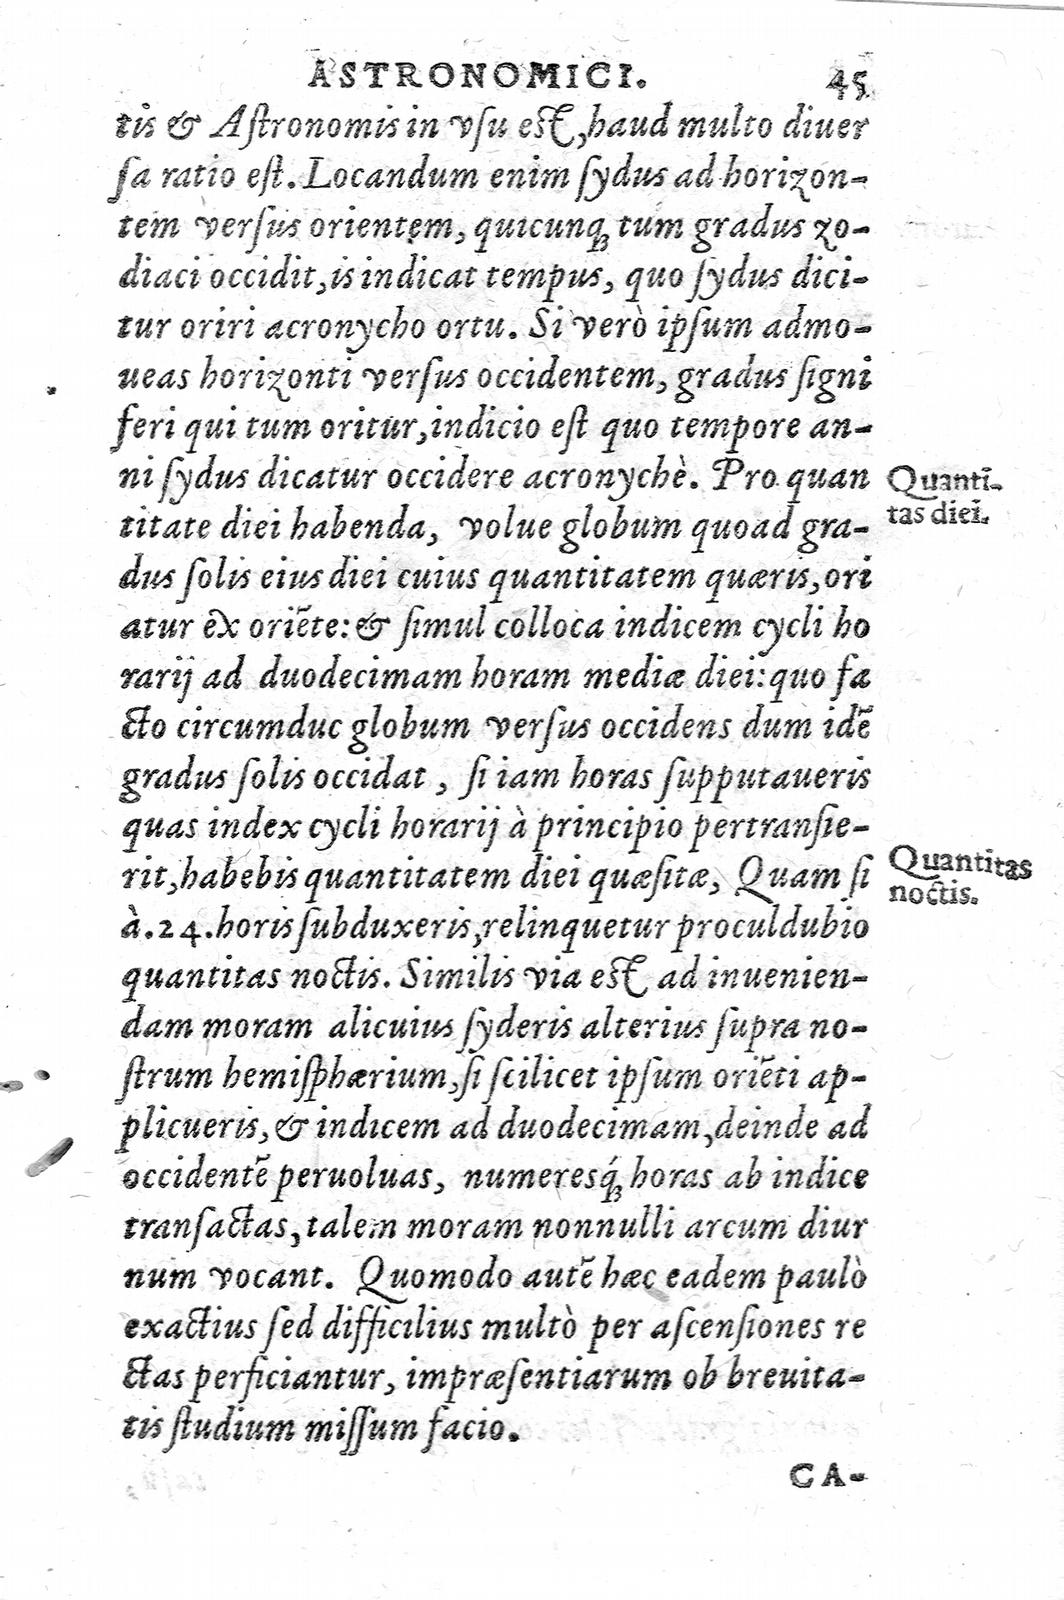 ASTRONOMICI. 45
tis & Aſtronomis in vſu eſt, haud multo diuer
ſa ratio eſt. Locandum enim ſydus ad horizon-
tem verſus orientem, quicunqꝫ tum gradus zo-
diaci occidit, is indicat tempus, quo ſydus dici-
tur oriri acronycho ortu. Si verò ipſum admo-
ueas horizonti verſus occidentem, gradus ſigni
feri qui tum oritur, indicio eſt quo tempore an-
ni ſydus dicatur occidere acronychè. Pro quan
Quanti-
titate diei habenda, volue globum quoad gra-
tas diei.
dus ſolis eius diei cuius quantitatem quæris, ori
atur ex oriēte: & ſimul colloca indicem cycli ho
rarij ad duodecimam horam mediæ diei: quo fa
cto circumduc globum verſus occidens dum idē
gradus ſolis occidat, ſi iam horas ſupputaueris
quas index cycli horarij à principio pertranſie-
rit, habebis quantitatem diei quæſitæ, Quam ſi
Quantitas
noctis.
à .24. horis ſubduxeris, relinquetur proculdubio
quantitas noctis. Similis via eſt ad inuenien-
dam moram alicuius ſyderis alterius ſupra no-
ſtrum hemiſphærium, ſi ſcilicet ipſum oriēti ap-
plicueris, & indicem ad duodecimam, deinde ad
occidentē peruoluas, numeresq́ꝫ horas ab indice
tranſactas, talem moram nonnulli arcum diur
num vocant. Quomodo autē hæc eadem paulò
exactius ſed difficilius multò per aſcenſiones re
ctas perficiantur, impræſentiarum ob breuita-
tis ſtudium miſſum facio.
CA-